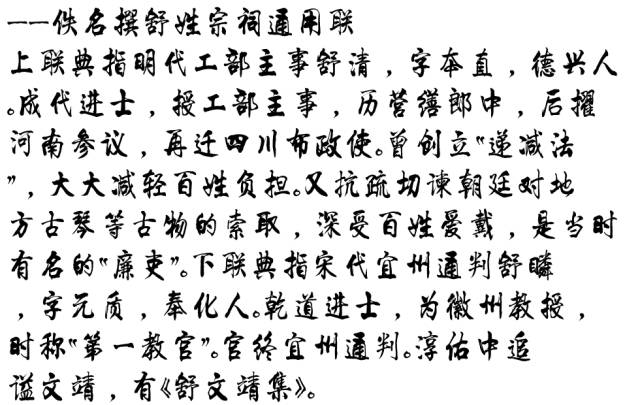 ——佚名撰舒姓宗祠通用联
上联典指明代工部主事舒清，字本直，德兴人
。成代进士，授工部主事，历营缮郎中，后擢
河南参议，再迁四川布政使。曾创立“递减法
”，大大减轻百姓负担。又抗疏切谏朝廷对地
方古琴等古物的索取，深受百姓爱戴，是当时
有名的“廉吏”。下联典指宋代宜州通判舒璘
，字元质，奉化人。乾道进士，为徽州教授，
时称“第一教官”。官终宜州通判。淳佑中追
谥文靖，有《舒文靖集》。